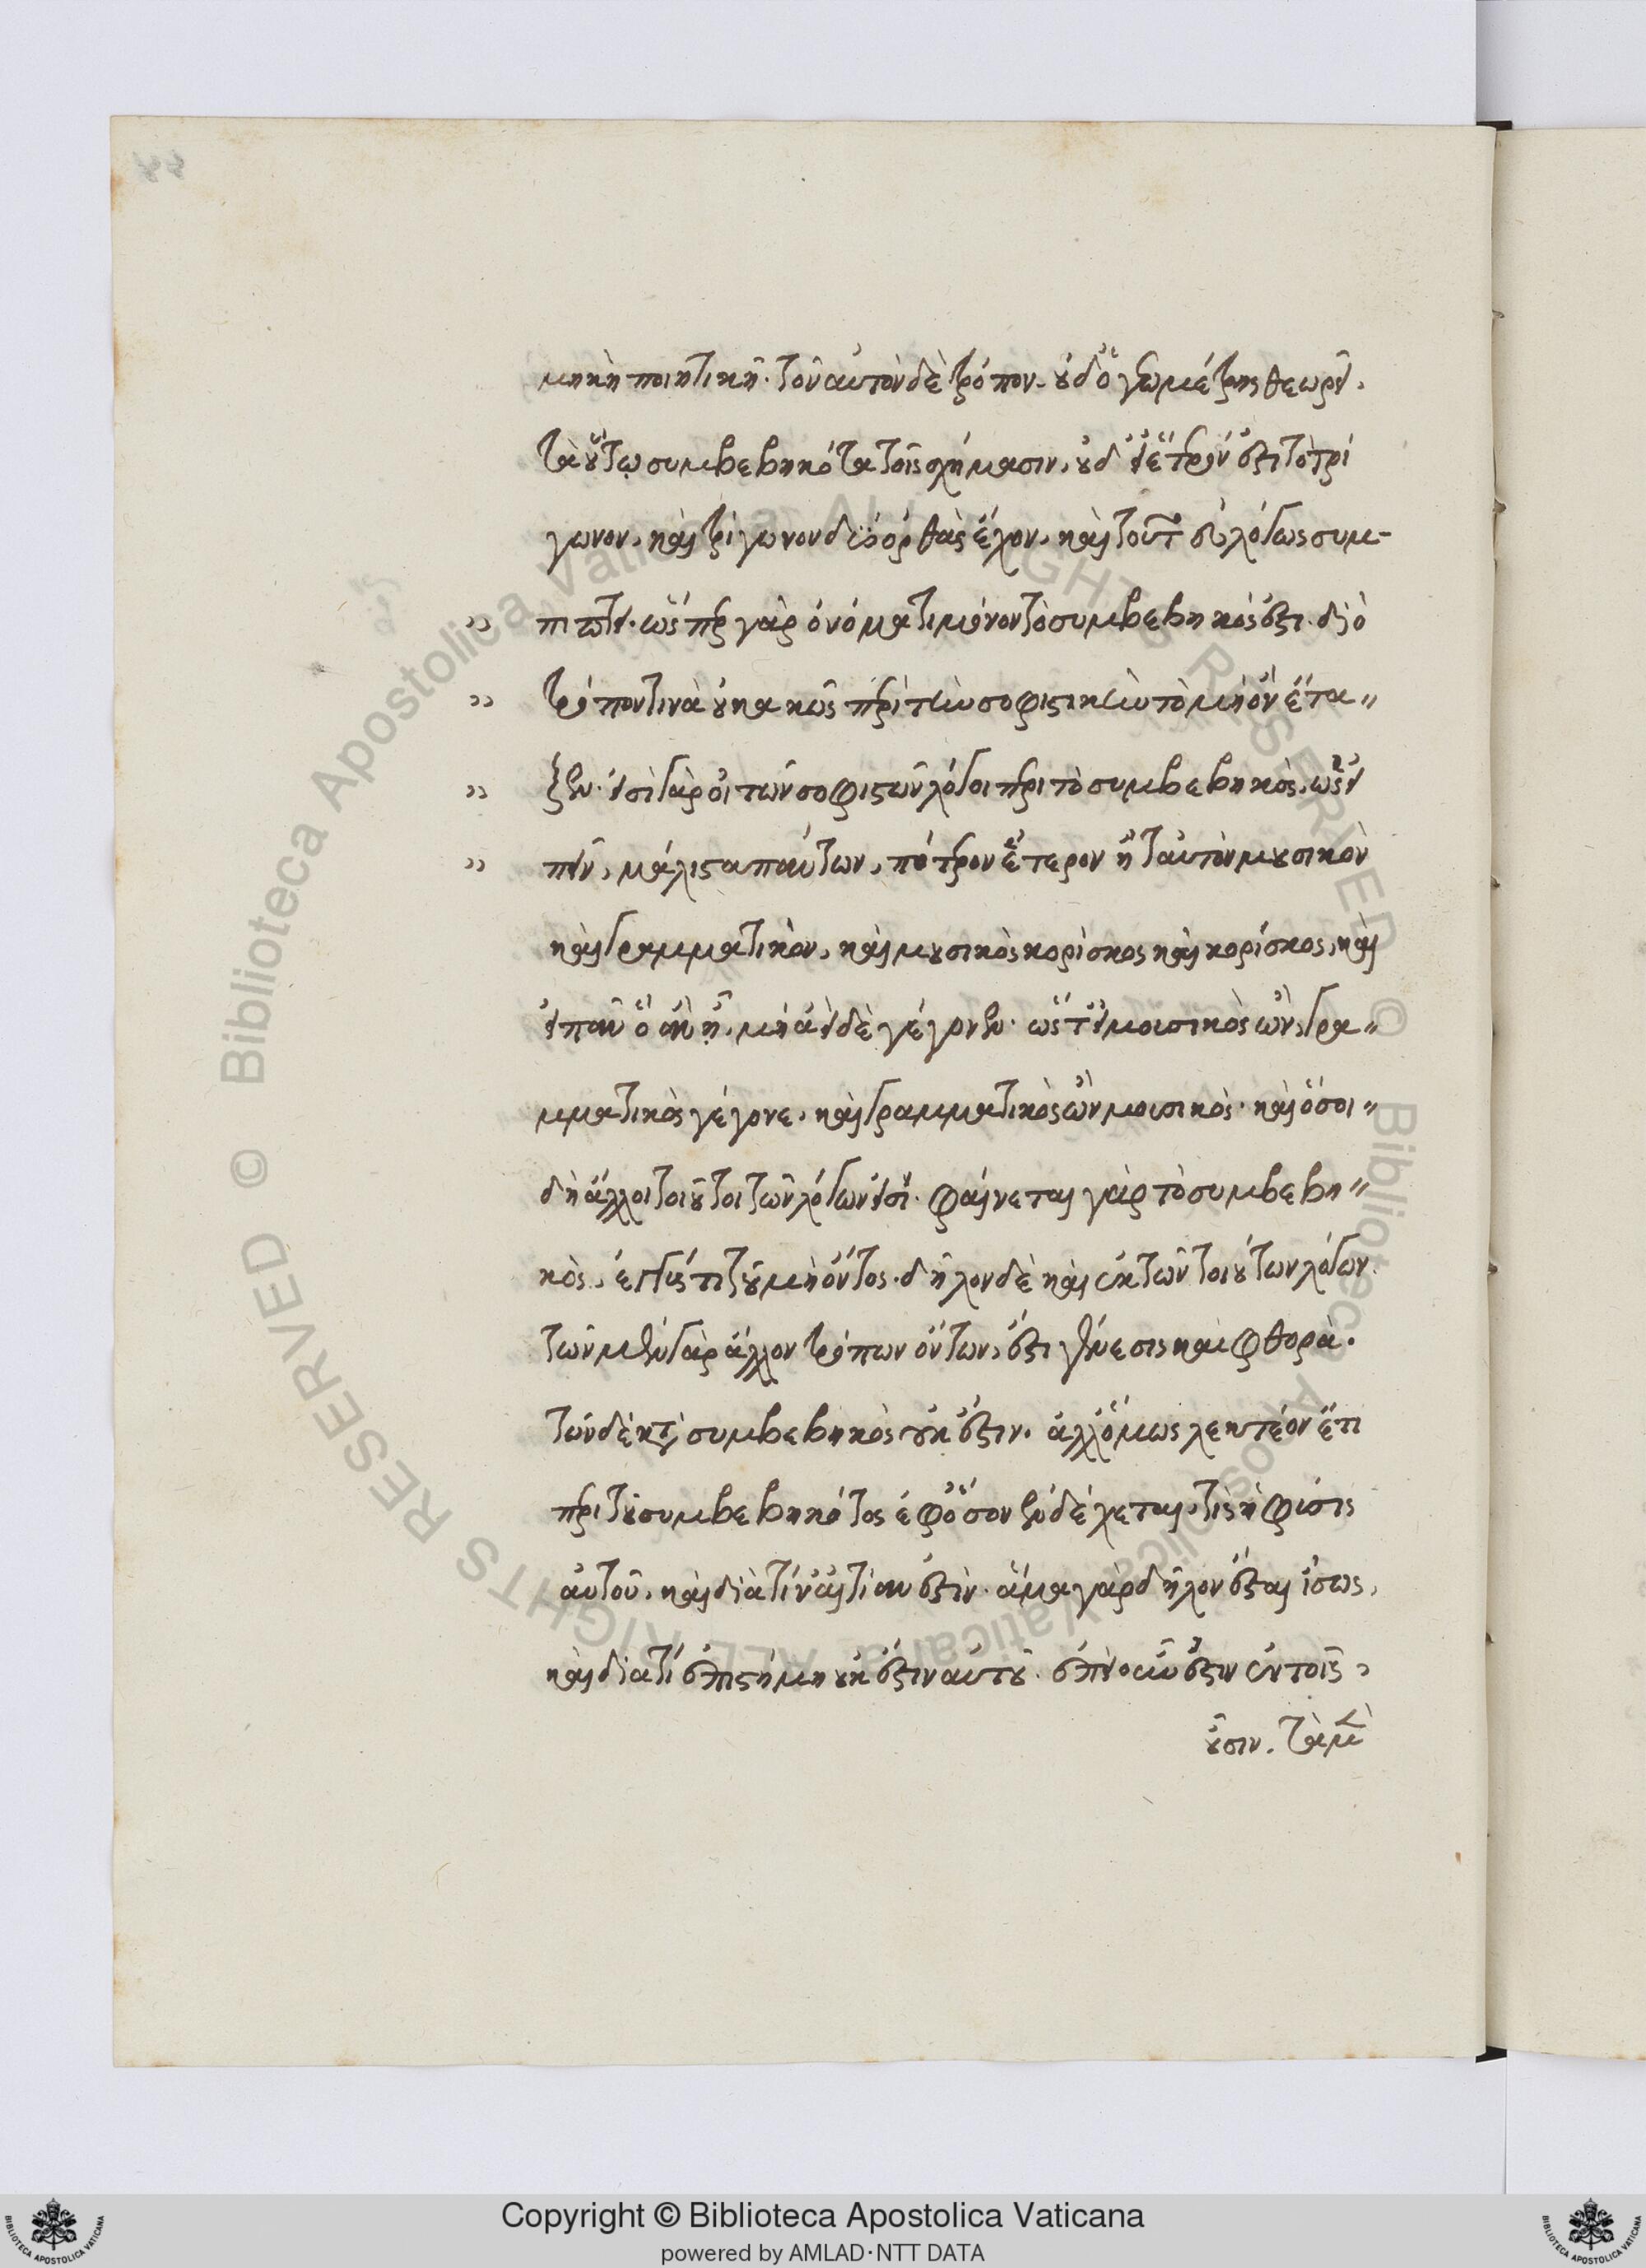 μηκὴ ποιητικὴ. τὸν αὐτὸν δὲ τρόπον. οὐδ' ὁ γεωμέτρης θεωρεῖ,
τὰ οὕτω συμβεβηκότα τοῖς σχήμασιν, οὐδ' εἰ ἕτερόν ἐστι τὸ τρί
γωνον, καὶ τρίγωνον δύο ὀρθὰς ἔχον, καὶ τοῦτ' εὐλόγως συμ-
πίπτει. ὥσπερ γὰρ ὀνόματι μόνον τὸ συμβεβηκός ἐστι. διὸ
τρόπον τινὰ οὐ κακῶς περὶ τὴν σοφιστικὴν τὸ μὴ ὂν ἔτα〃
ξεν. εἰσὶ γὰρ οἱ τῶν σοφιστῶν λόγοι περὶ τὸ συμβεβηκὸς, ὡς εἰ
πεῖν, μάλιστα πάντων, πότερον ἕτερον ἢ ταὐτὸν μουσικὸν
καὶ γραμματικὸν, καὶ μουσικὸς κορίσκος καὶ κορίσκος, καὶ
εἰ πᾶν ὃ ἂν ᾖ, μὴ ἀεὶ δὲ γέγονεν. ὥστ' εἰ μουσικὸς ὢν, γρα〃
μματικὸς γέγονε, καὶ γραμματικὸς ὢν μουσικὸς. καὶ ὅσοι〃
δὴ ἄλλοι τοιοῦτοι τῶν λόγων εἰσί. φαίνεται γὰρ τὸ συμβεβη〃
κὸς, ἐγγύς τι τοῦ μὴ ὄντος. δῆλον δὲ καὶ ἐκ τῶν τοιούτων λόγων.
τῶν μὲν γὰρ ἄλλον τρόπων ὄντων, ἔστι γένεσις καὶ φθορὰ.
τῶν δὲ κατὰ συμβεβηκὸς οὐκ ἔστιν. ἀλλ' ὅμως λεκτέον ἔτι
περὶ τοῦ συμβεβηκότος ἐφ' ὅσον ἐνδέχεται, τίς ἡ φύσις
αὐτοῦ, καὶ διὰ τίν' αἰτίαν ἐστὶν. ἅμα γὰρ δῆλον ἔσται ἴσως,
καὶ διατί ἐπιστήμη οὐκ ἔστιν αὐτοῦ. ἐπεὶ οὖν ἔστιν ἐν τοῖς,
οὖσιν. τὰ μὲν